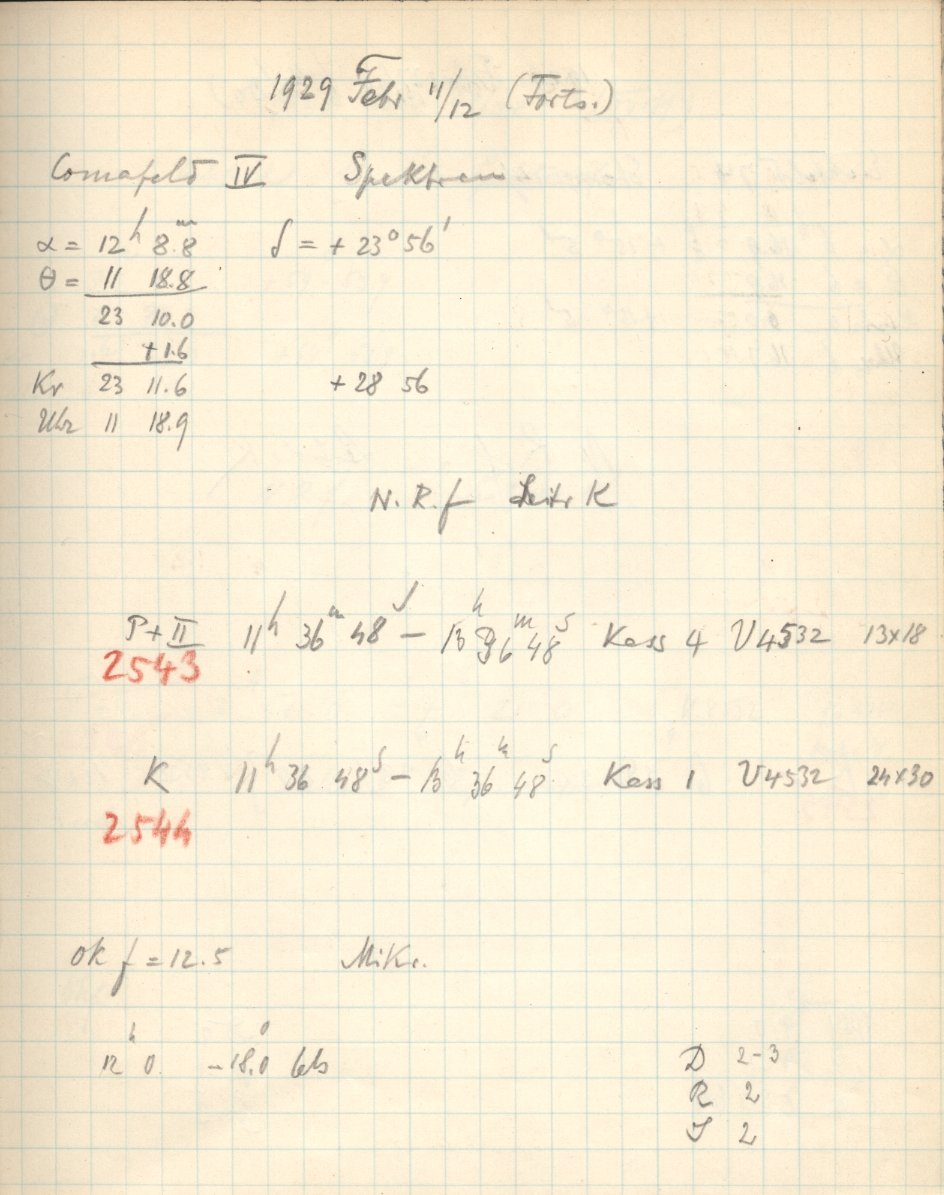 1929 Febr 11/12 (Forts.)
Comafeld IV Spektren
α = 12h 8.8m δ = + 23° 56'
θ = 11 18.8
23 10.0
+1.6
Kr 23 11.6 + 28 56
Uhr 11 18.9
N. R. f Leitr K
P + II 11h 36m 48s – 13h 36m 48s Kass 4 V4532 13x18
2543
K 11h 36 48s – 13h 36m 48s Kass 1 V4532 24x30
2544
Ok f = 12.5 Mikr.
12h 0 –18.0°
D 2-3
R 2
J 2